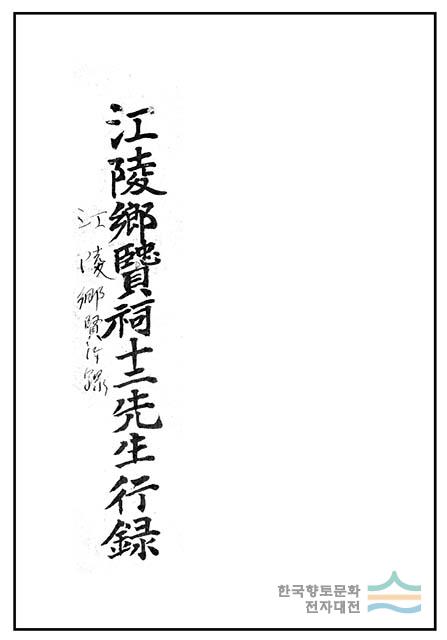 江陵鄕賢祠十二先生行録
江陵鄕賢行录
한국향토문화
전자대전